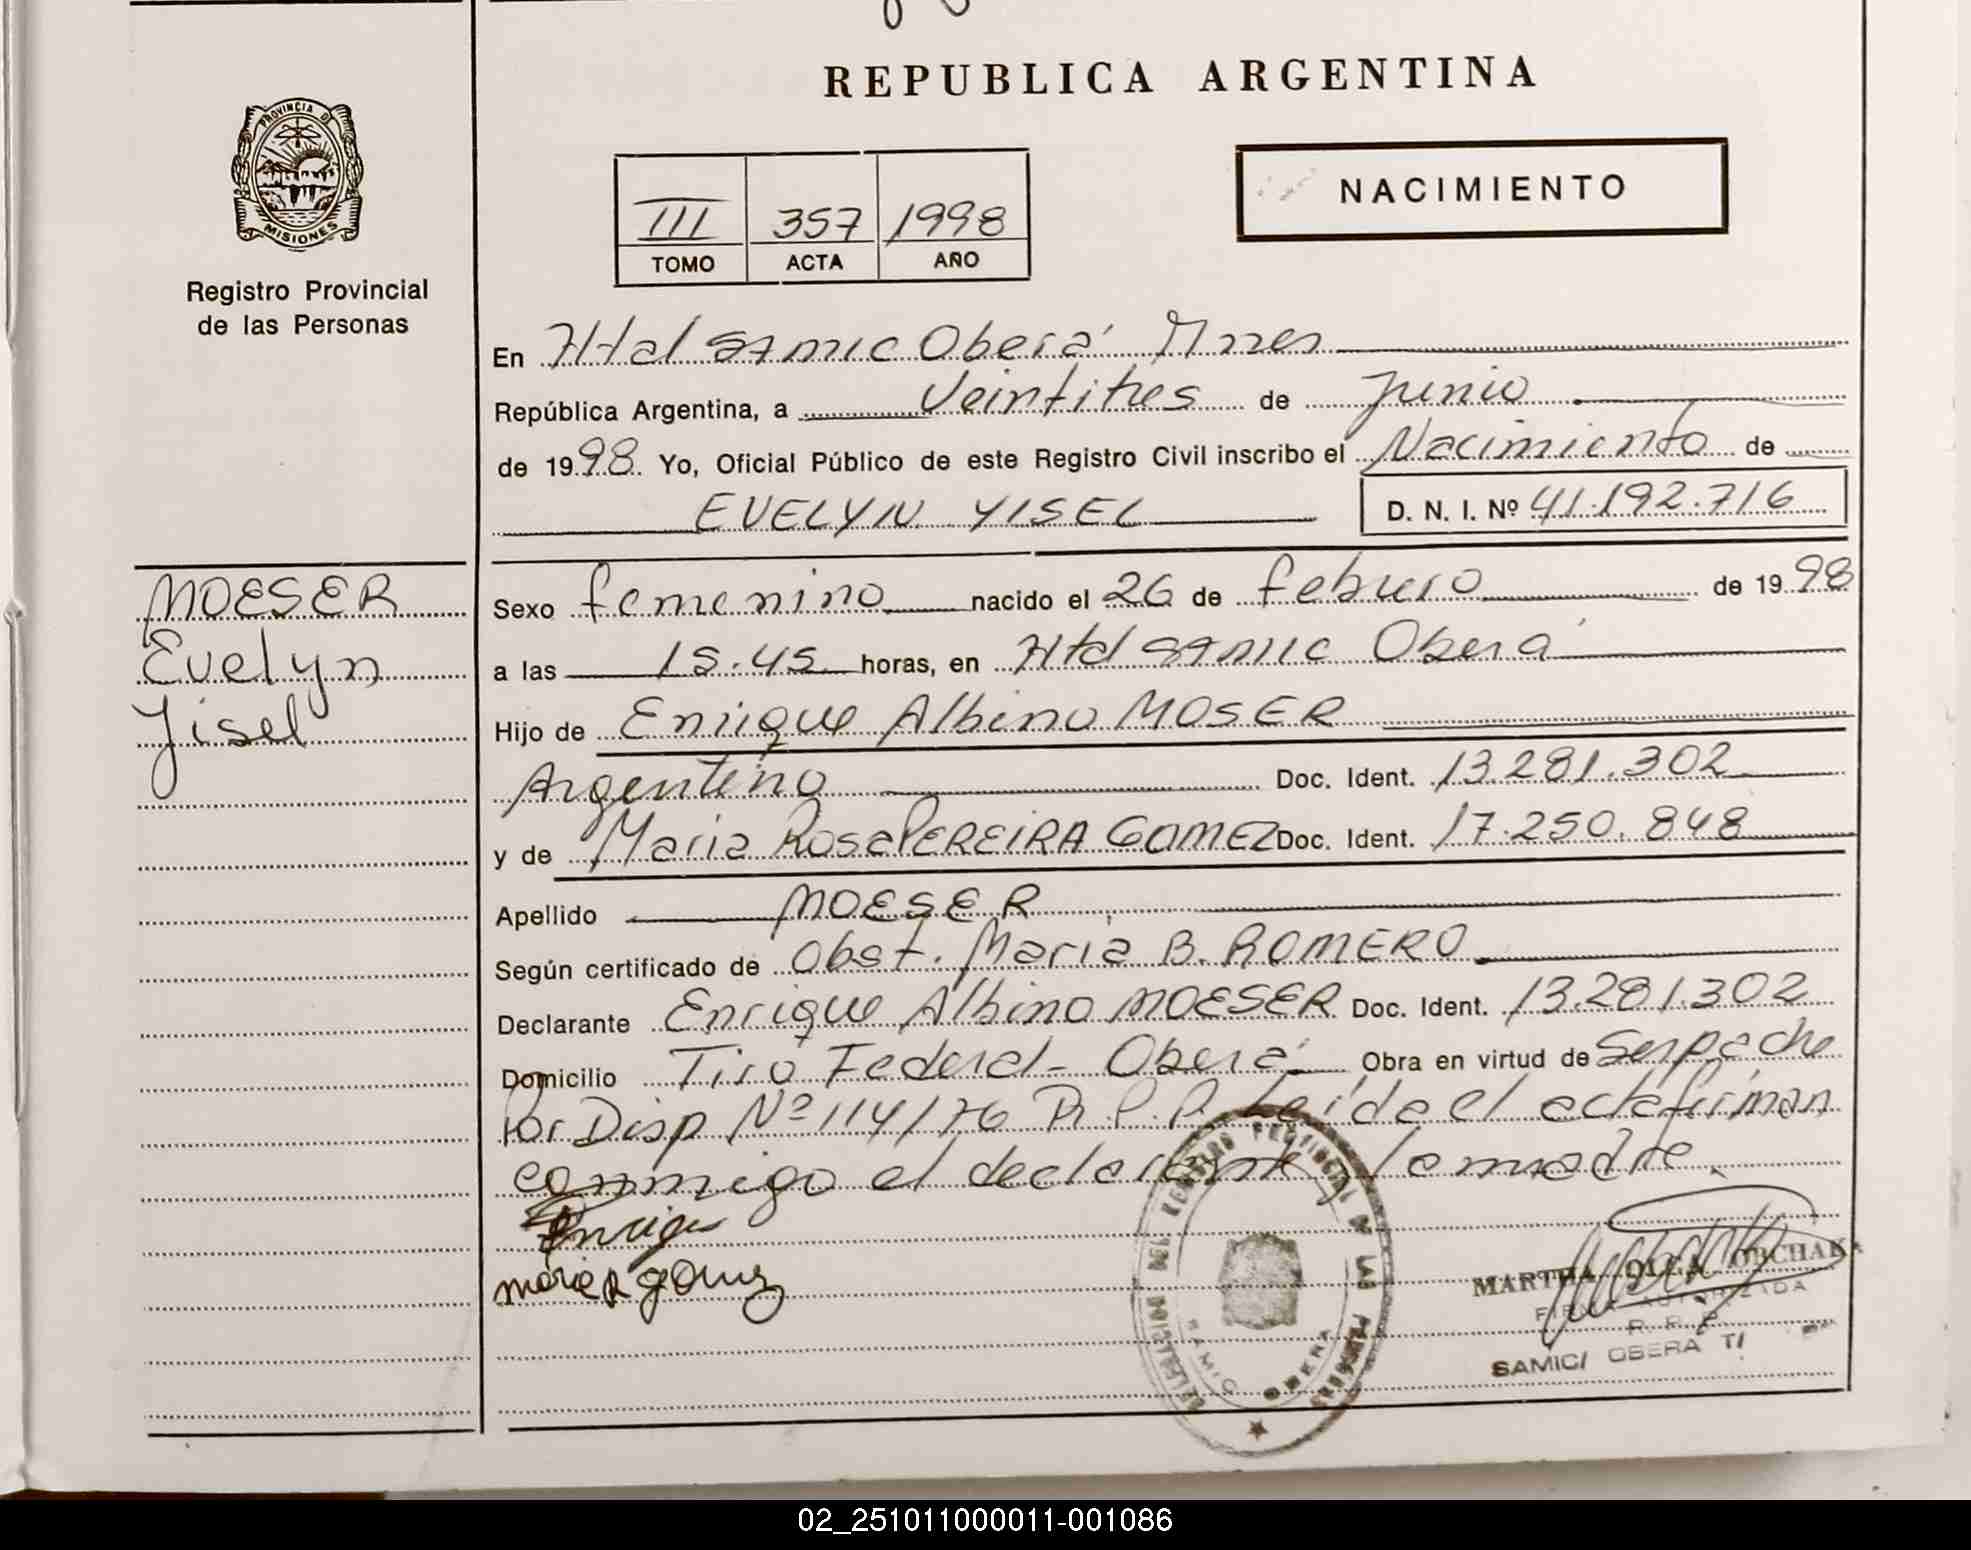 REPUBLICA ARGENTINA
PROVINCIA DE
MISIONES
Registro Provincial
de las Personas
III 357 1998
TOMO ACTA AÑO
NACIMIENTO
En Htal SAMIC Oberá Mnes
República Argentina, a Veintitres de Junio
de 1998 Yo, Oficial Público de este Registro Civil inscribo el Nacimiento de
EVELYN YISEL D. N. I. Nº 41.192.716
MOESER
Evelyn
Yisel
Sexo femenino nacido el 26 de febrero de 1998
a las 15.45 horas, en Htal SAMIC Oberá
Hijo de Enrique Albino MOSER
Argentino Doc. Ident. 13.281.302
y de Maria Rosa PEREIRA GOMEZ Doc. Ident. 17.250.848
Apellido MOESER
Según certificado de Obst. Maria B. ROMERO
Declarante Enrique Albino MOESER Doc. Ident. 13.281.302
Domicilio Tiro Federal - Oberá Obra en virtud de
Por Disp Nº 114/76 R.P.P. Leída el acta firman
conmigo el declarante y la madre.
Enrique
maria R gomez
REGISTRO PROVINCIAL DE LAS PERSONAS
SAMIC OBERA
MARTHA OLGA
FIRMA AUTORIZADA
R. P. P.
SAMIC/ OBERA
02_251011000011-001086